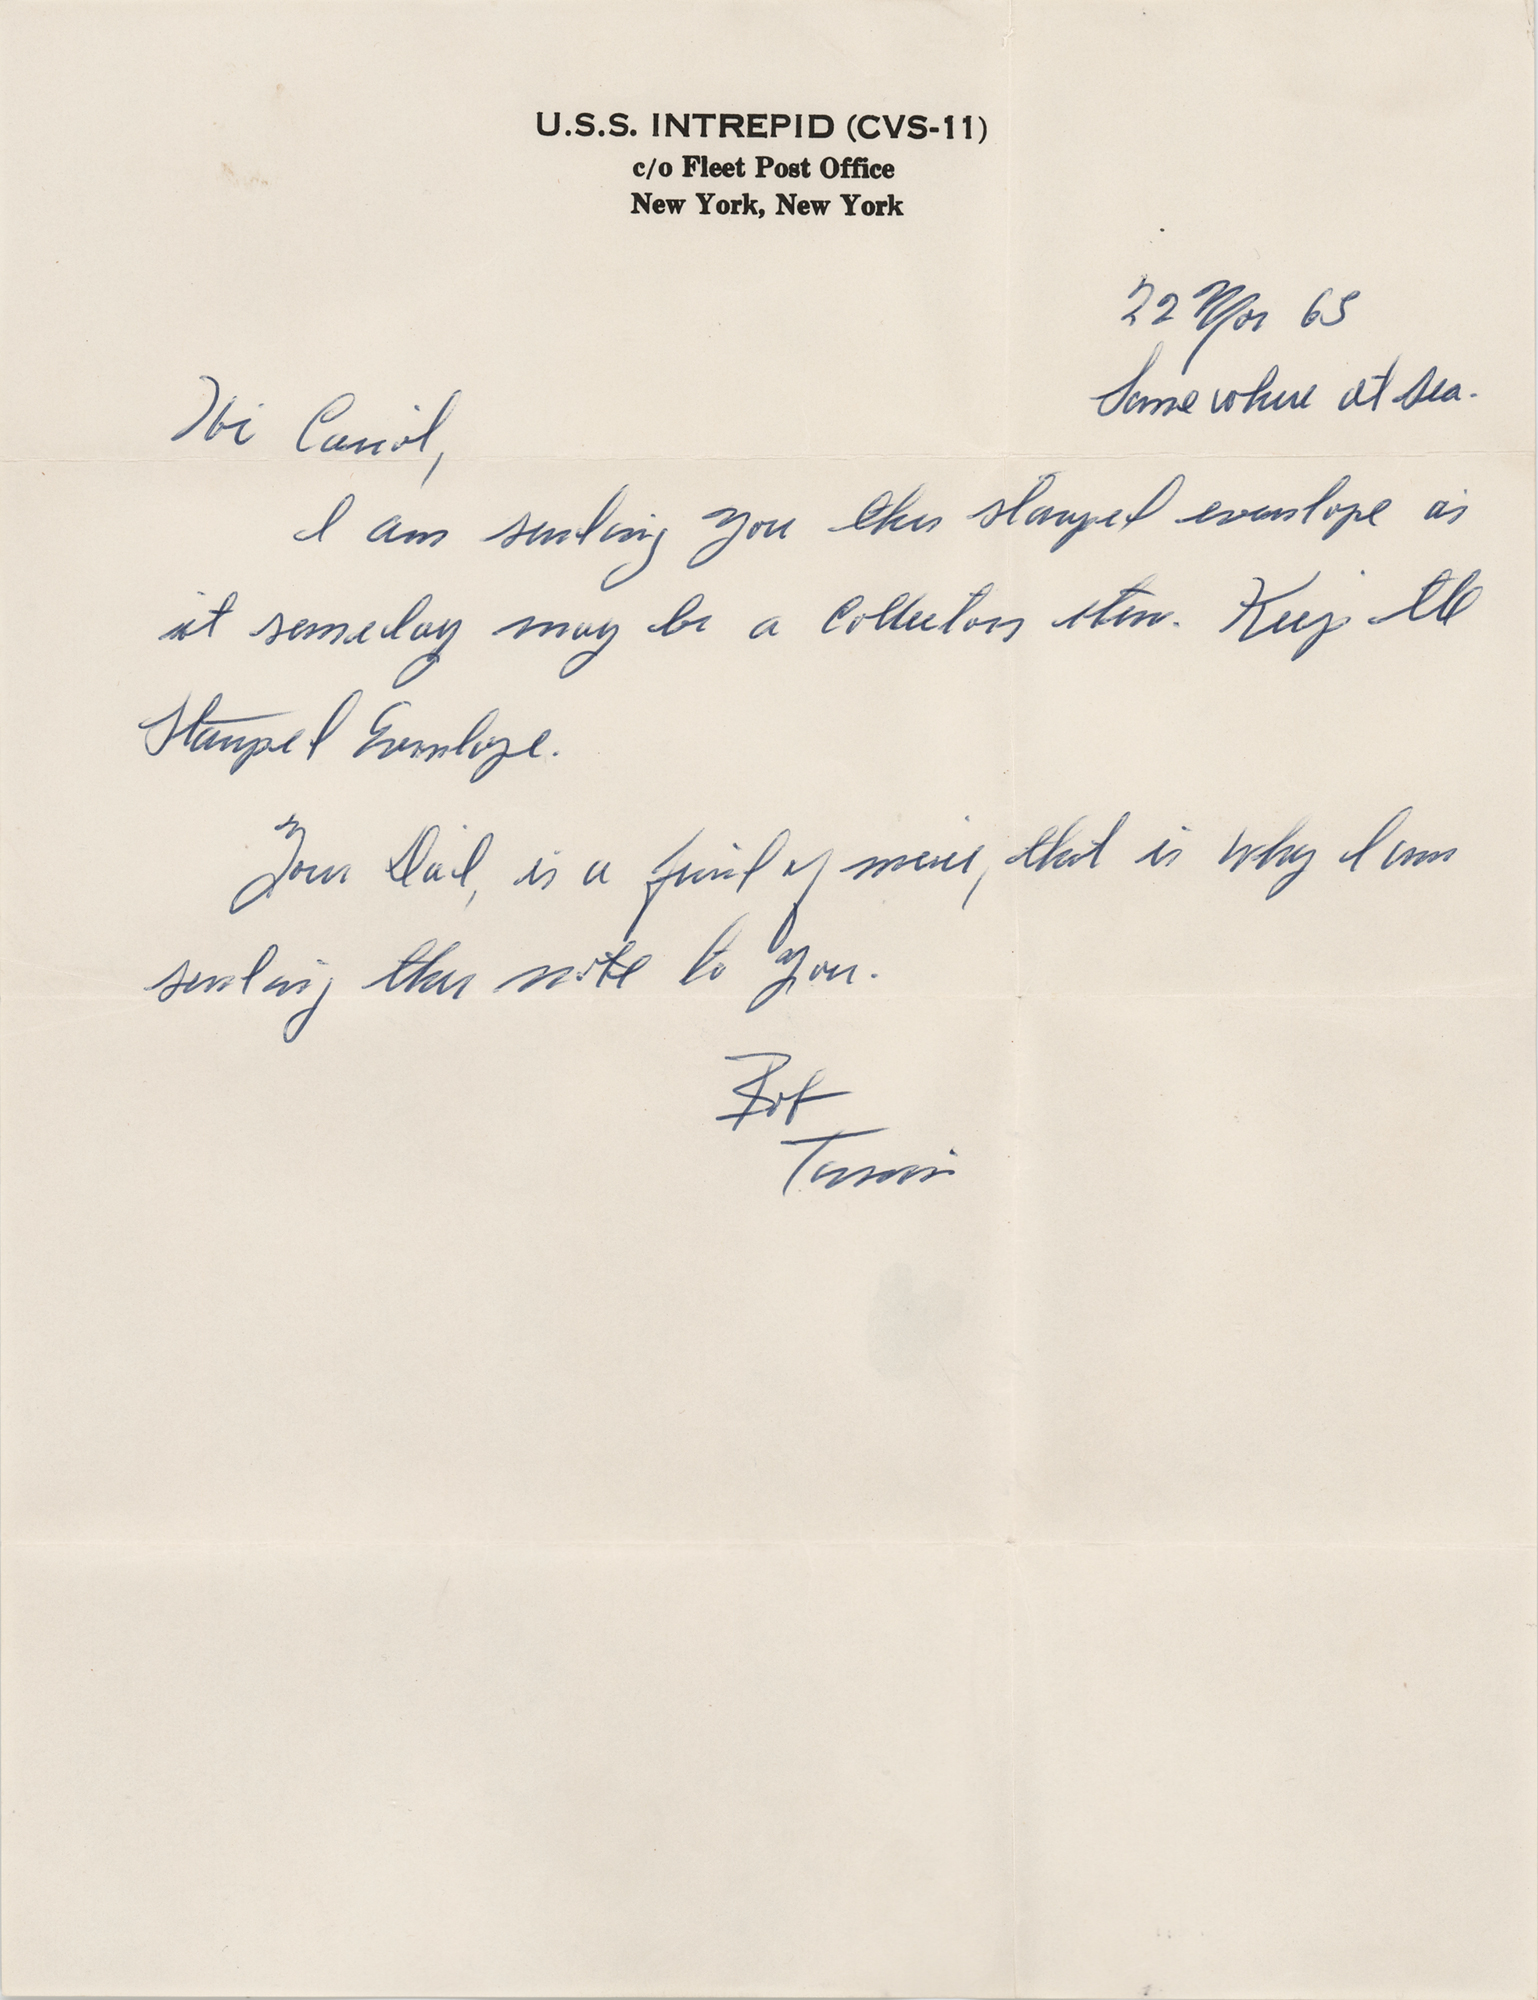 U.S.S. INTREPID (CVS-11)
c/o Fleet Post Office
New York, New York
22 Mar 65
Somewhere at sea.
Hi Carol,
I am sending you this stamped envelope as
it someday may be a collectors item. Keep the
Stamped Envelope.
Your Dad, is a friend of mine, that is why I am
sending this note to you.
Bob